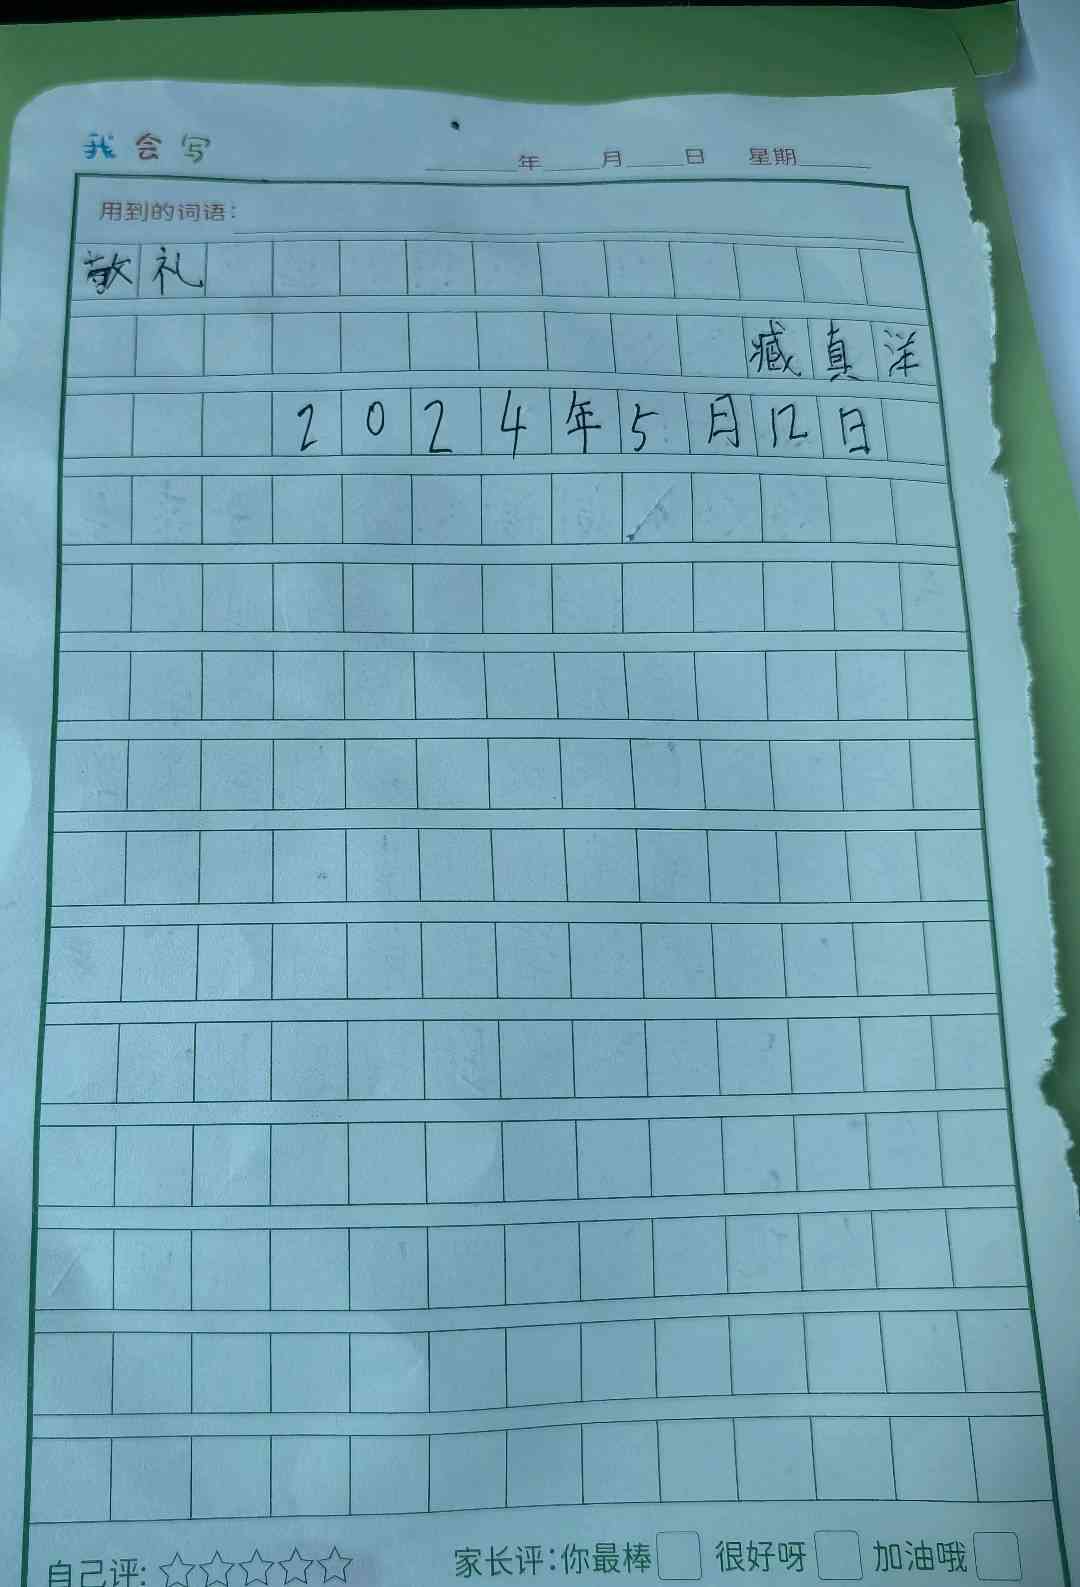 我会写
年 月 日 星期
用到的词语:
敬礼
臧真洋
2024年5月12日
自己评:
家长评:你最棒 很好呀 加油哦